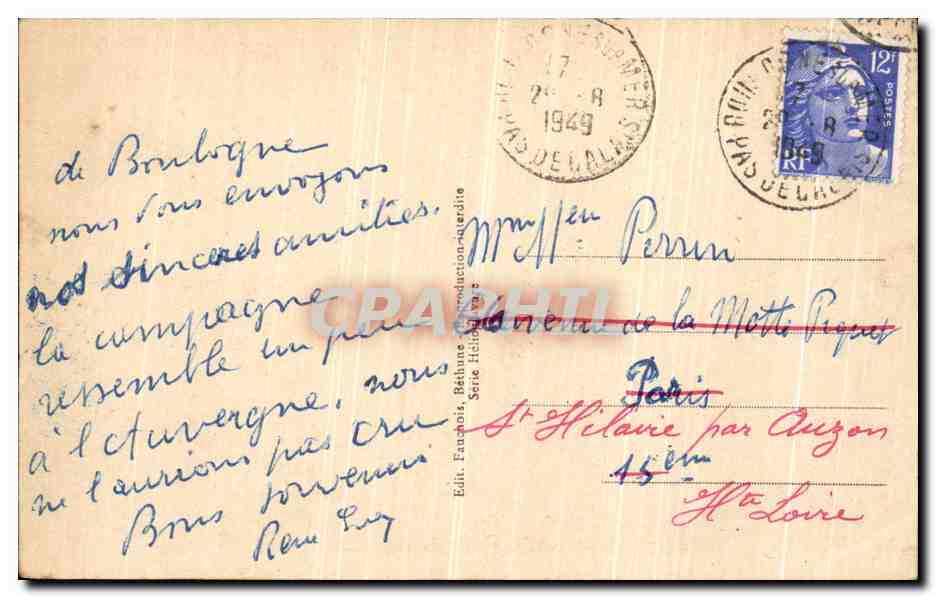 de Boulogne
nous vous envoyons
nos sinceres amitiés.
la campagne
ressemble un peu
à l'Auvergne, nous
ne l'aurions pas cru
Bons souvenirs
BOULOGNE SUR MER
17
29 - 8
1949
PAS DE CALAIS
12F
POSTES
RF
BOULOGNE SUR MER
29 - 8
1949
PAS DE CALAIS
Perrin
Avenue de la Motte Piquet
Paris
St Hilaire par Auzon
15ème
Hte Loire
Edit. Fauchois, Béthune Reproduction interdite
Série
CPAPHIL